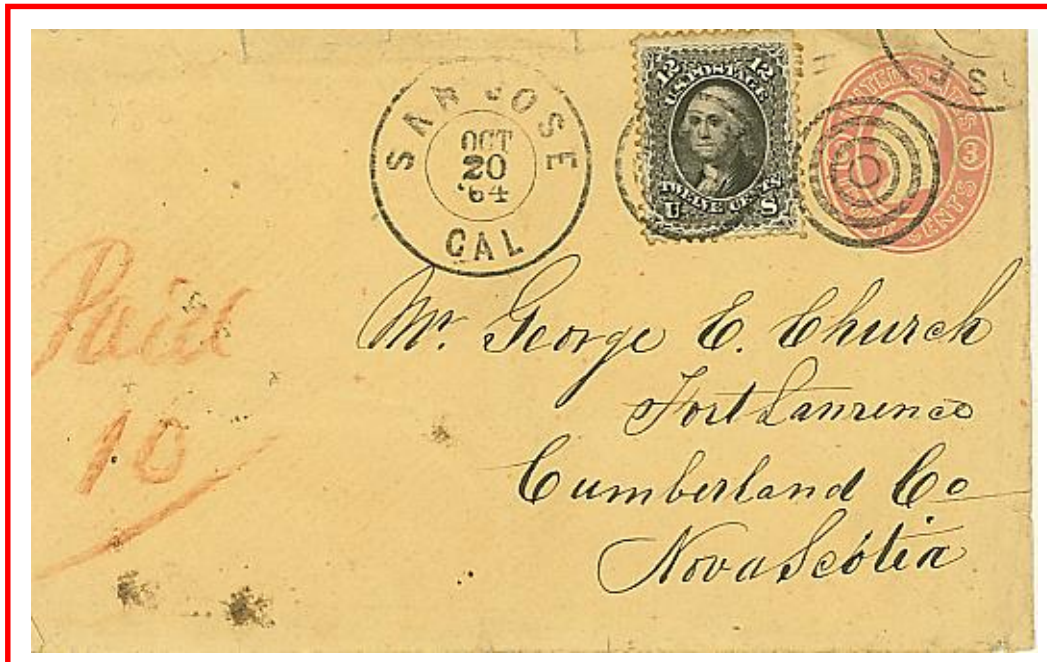 SAN JOSE
OCT
20
'64
CAL
12 12
U.S. POSTAGE
TWELVE CENTS
U S
UNITED STATES
3
CENTS
OSE
Paid
10
Mr. George E. Church
Fort Lawrence
Cumberland Co
Nova Scotia